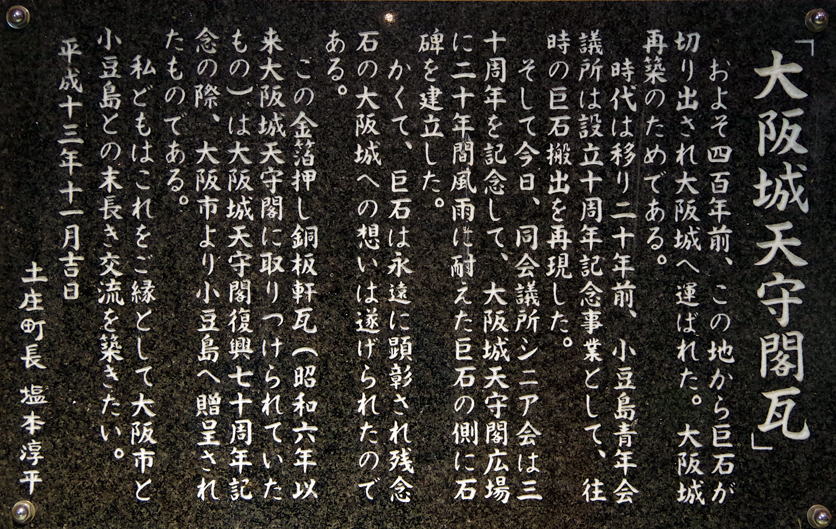 「大阪城天守閣瓦」
およそ四百年前、この地から巨石が
切り出され大阪城へ運ばれた。大阪城
再築のためである。
時代は移り二十年前、小豆島青年会
議所は設立十周年記念事業として、往
時の巨石搬出を再現した。
そして今日、同会議所シニア会は三
十周年を記念して、大阪城天守閣広場
に二十年間風雨に耐えた巨石の側に石
碑を建立した。
かくて、巨石は永遠に顕彰され残念
石の大阪城への想いは遂げられたので
ある。
この金箔押し銅板軒瓦(昭和六年以
来大阪城天守閣に取りつけられていた
もの)は大阪城天守閣復興七十周年記
念の際、大阪市より小豆島へ贈呈され
たものである。
私どもはこれをご縁として大阪市と
小豆島との末長き交流を築きたい。
平成十三年十一月吉日
土庄町長 塩本淳平